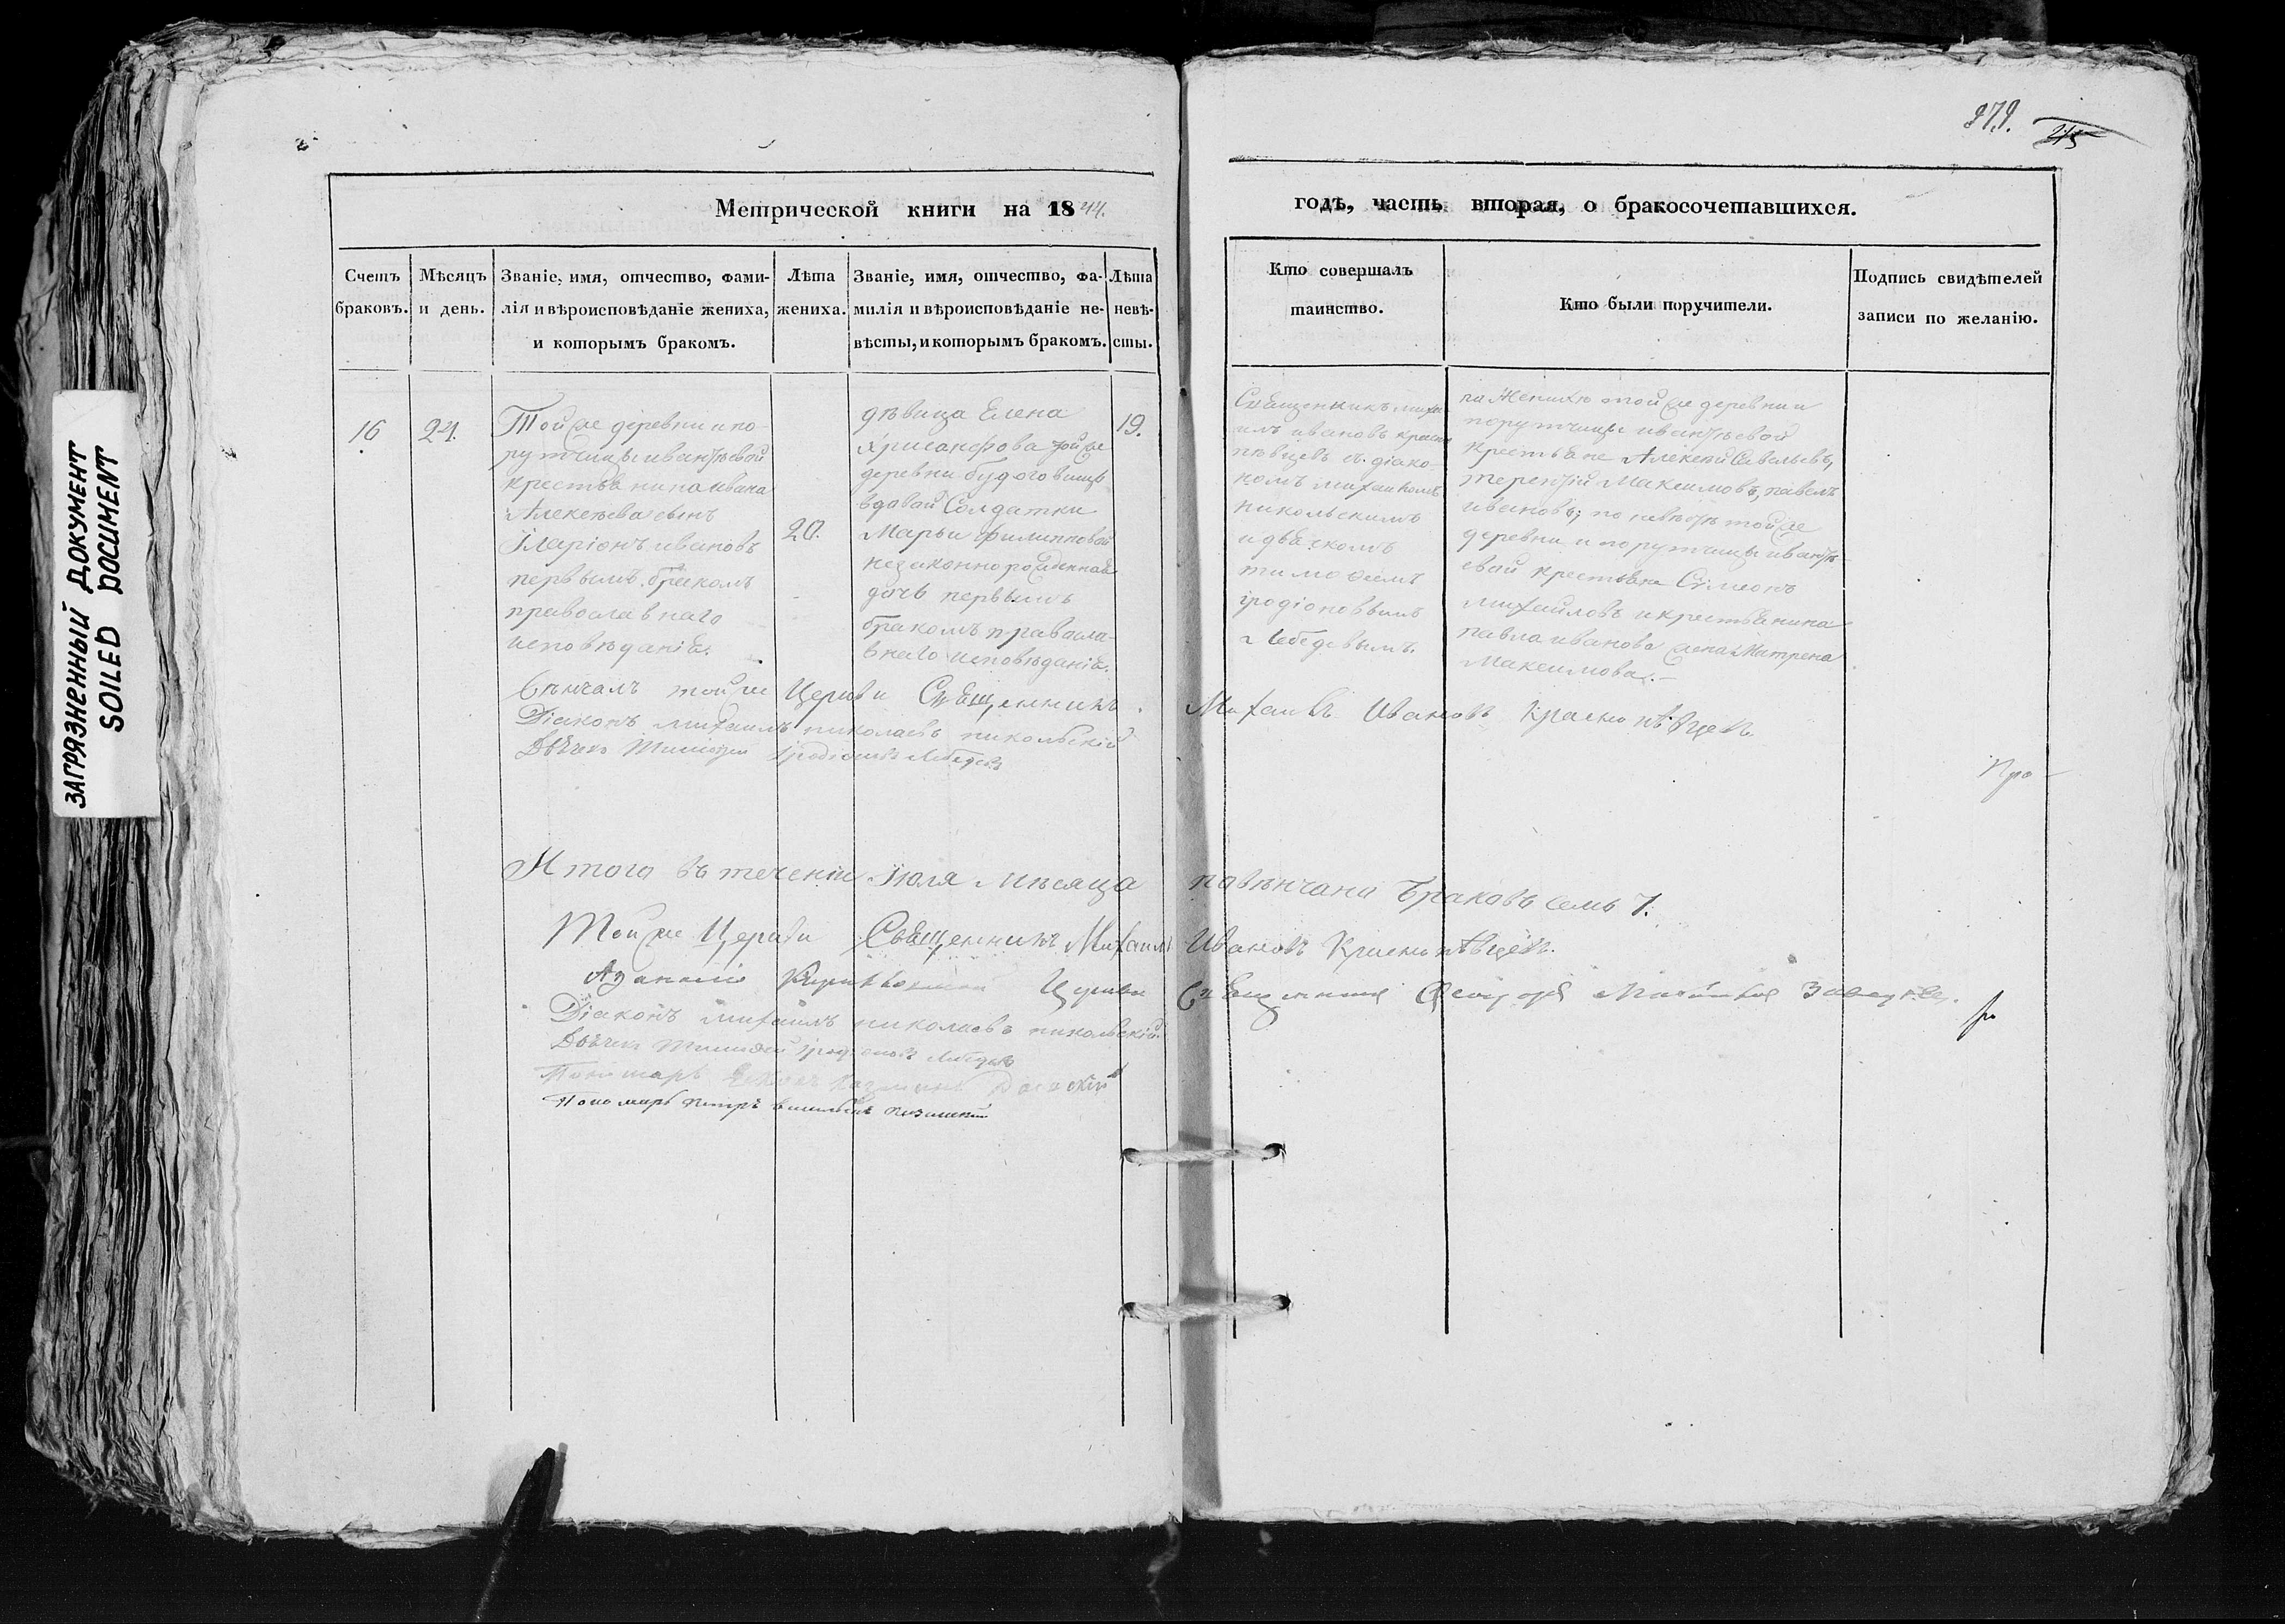 279.
215
Метрической книги на 1844.
годъ, часть вторая, о бракосочетавшихся.
Счетъ браковъ.
Мѣсяцъ и день.
Званіе, имя, отчество, фами-
лія и вѣроисповѣданіе жениха,
и которымъ бракомъ.
Лѣта
жениха.
Званіе, имя, отчество, фа-
милія и вѣроисповѣданіе не-
вѣсты, и которымъ бракомъ.
Лѣта
невѣ-
сты.
Кто совершалъ
таинство.
Кто были поручители.
Подпись свидѣтелей
записи по желанію.
16
24.
Той же деревни и по-
рутчицы
крестьянина Ивана
Алексѣева сынъ
Іларіонъ Ивановъ
первымъ бракомъ
православнаго
исповѣданія.
20.
дѣвица Елена
Хрисанфова той же
деревни Будоговищъ
вдовой Солдатки
Марьи Филипповой
незаконнорожденная
дочь первымъ
бракомъ правосла-
внаго исповѣданія.
19.
Священникъ Миха-
илъ Ивановъ Красно
пѣвцевъ съ діако-
номъ Михаиломъ
Никольскимъ
и дьячкомъ
Тимофеемъ
Іродіоновымъ
Лебедевымъ.
по женихѣ той же деревни и
порутчицы
крестьяне Алексѣй Савельевъ,
Терентій Максимовъ, Павелъ
Ивановъ; по невѣстѣ той же
деревни и порутчицы
крестьяне Симеонъ
Михайловъ и крестьянина
Павла Иванова жена Матрена
Максимова.
Вѣнчалъ той же Церкви Священникъ Михаилъ Ивановъ Краснопѣвцевъ.
Діаконъ Михаилъ Николаевъ Никольскій
Дьячекъ Тимофей Іродіоновъ Лебедевъ
Про-
Итого въ теченіи Іюля мѣсяца повѣнчано браковъ семь 7.
Той же Церкви Священникъ Михаилъ Ивановъ Краснопѣвцевъ.
Церкви Священникъ
Діаконъ Михаилъ Николаевъ Никольскій
Дьячекъ Тимофей Іродіоновъ Лебедевъ
Пономарь
Пономарь Петръ Васильевъ
ЗАГРЯЗНЕННЫЙ ДОКУМЕНТ
SOILED DOCUMENT